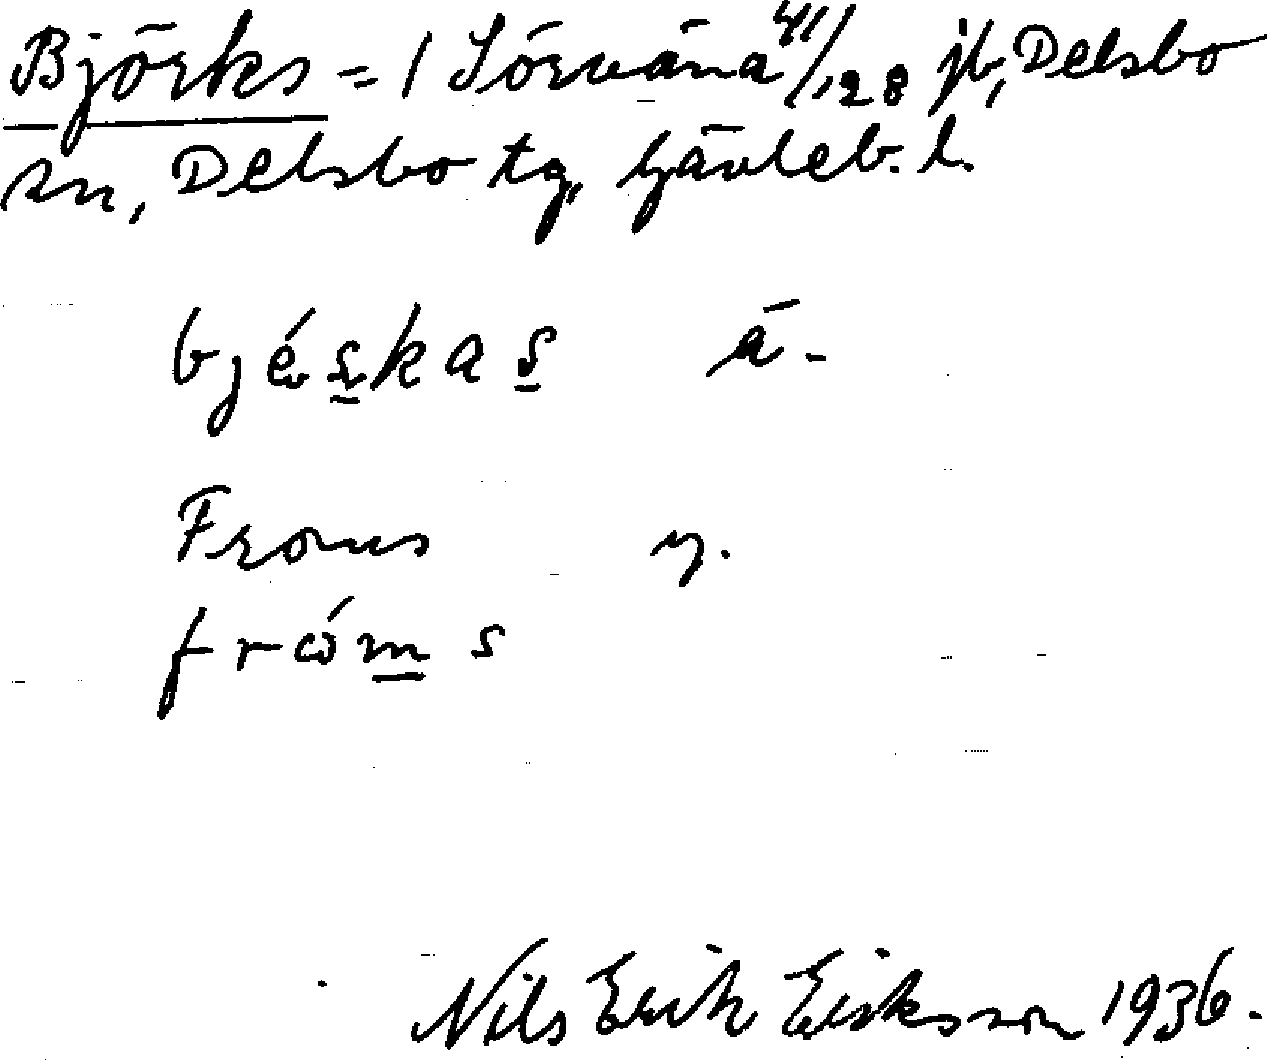 Björks = / Sörvåna 41/128 jb, Delsbo
sn, Delsbo tg, Gävleb. l.
bjéskas å.
Froms y.
fróms
Nils Erik Eriksson 1936.